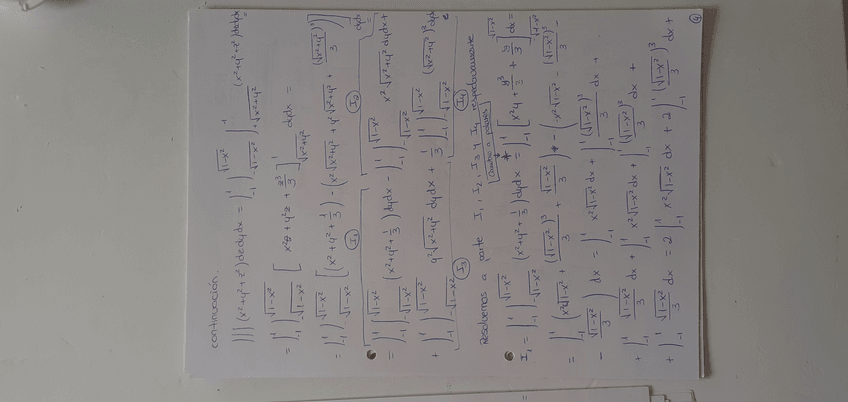 continuación.
∫∫∫ (x²+y²+z²) dz dy dx = ∫₋₁¹ ∫_{-√(1-x²)}^{√(1-x²)} ∫_{√(x²+y²)}^1 (x²+y²+z²) dz dy dx =
= ∫₋₁¹ ∫_{-√(1-x²)}^{√(1-x²)} [x²z + y²z + z³/3]_{√(x²+y²)}^1 dy dx =
= ∫₋₁¹ ∫_{-√(1-x²)}^{√(1-x²)} [(x²+y²+1/3) - (x²√(x²+y²) + y²√(x²+y²) + (√(x²+y²))³/3)] dy dx =
I₁ I₂
= ∫₋₁¹ ∫_{-√(1-x²)}^{√(1-x²)} (x²+y²+1/3) dy dx - ∫₋₁¹ ∫_{-√(1-x²)}^{√(1-x²)} x²√(x²+y²) dy dx +
+ ∫₋₁¹ ∫_{-√(1-x²)}^{√(1-x²)} y²√(x²+y²) dy dx + 1/3 ∫₋₁¹ ∫_{-√(1-x²)}^{√(1-x²)} (√(x²+y²))³ dy dx
I₃ I₄
Resolvemos a parte I₁, I₂, I₃ y I₄ respectivamente
I₁ = ∫₋₁¹ ∫_{-√(1-x²)}^{√(1-x²)} (x²+y²+1/3) dy dx = ∫₋₁¹ [x²y + y³/3 + y/3]_{-√(1-x²)}^{√(1-x²)} dx =
= ∫₋₁¹ (x²√(1-x²) + (√(1-x²))³/3 + √(1-x²)/3) - (-x²√(1-x²) - (√(1-x²))³/3 -
- √(1-x²)/3) dx = ∫₋₁¹ x²√(1-x²) dx + ∫₋₁¹ (√(1-x²))³/3 dx +
+ ∫₋₁¹ √(1-x²)/3 dx + ∫₋₁¹ x²√(1-x²) dx + ∫₋₁¹ (√(1-x²))³/3 dx +
+ ∫₋₁¹ √(1-x²)/3 dx = 2∫₋₁¹ x²√(1-x²) dx + 2∫₋₁¹ (√(1-x²))³/3 dx +